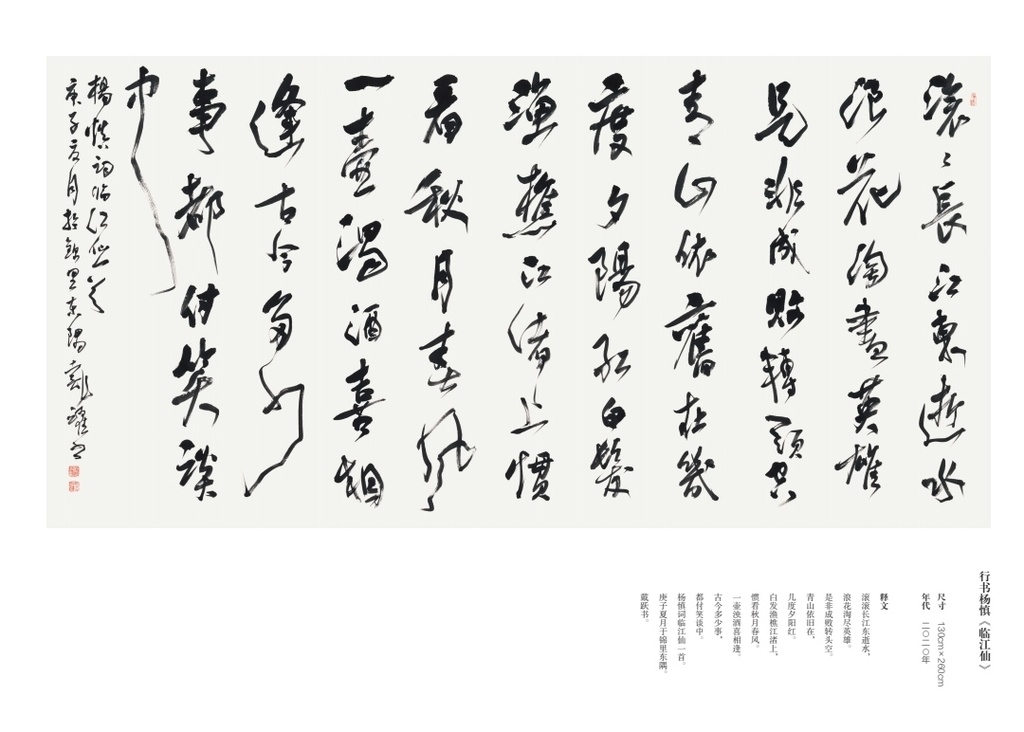 滚〻長江東逝水
浪花淘盡英雄
是非成敗轉頭空
青山依舊在幾
度夕陽紅白髮
漁樵江渚上慣
看秋月春風
一壺濁酒喜相
逢古今多少
事都付笑談
中
楊慎詞臨江仙一首
庚子夏月於錦里東隅戴躍書
行书杨慎《临江仙》
尺寸 130cm×260cm
年代 二〇二〇年
释文
滚滚长江东逝水，
浪花淘尽英雄。
是非成败转头空。
青山依旧在，
几度夕阳红。
白发渔樵江渚上，
惯看秋月春风。
一壶浊酒喜相逢。
古今多少事，
都付笑谈中。
杨慎词临江仙一首。
庚子夏月于锦里东隅。
戴跃书。